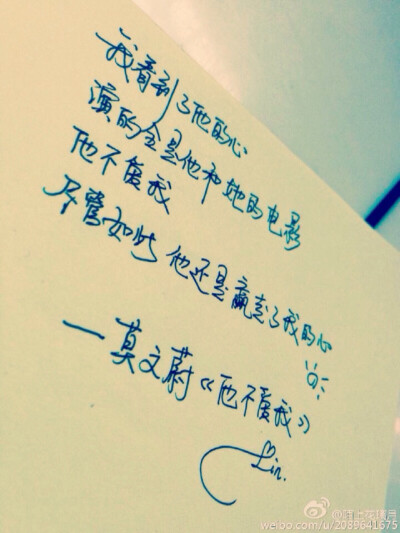 我看到了他的心
演的全是他和她的电影
他不爱我
尽管如此 他还是赢走了我的心
一莫文蔚《他不爱我》
Lin.
weibo.com/u/2089641675